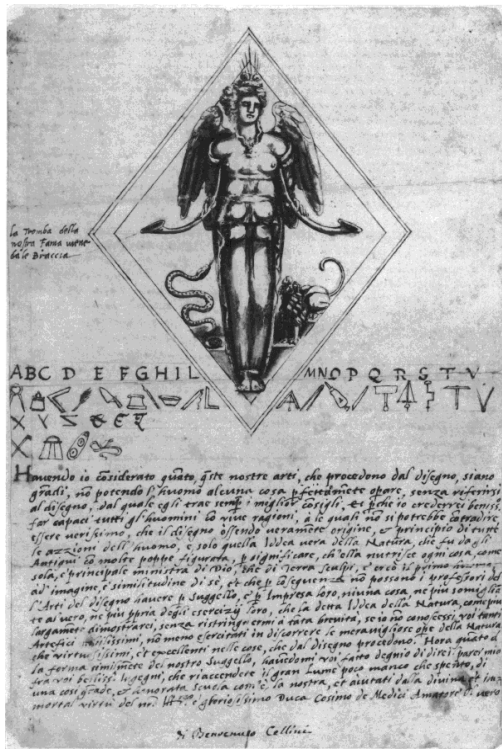 la Tromba della
nostra Fama viene
da le Braccia
ABC D E F G H I L MNOP Q R S T V
X Y Z
Havendo io cōsiderato quāto, q̄ste nostre arti, che procedono dal disegno, siano
grādi, nō potendo l'huomo alcuna cosa pfettamēte opare, senza riferirsi
al disegno, dal quale egli trae semp i miglior cōsigli. Et pche io crederrei beniss.
far capaci tutti gl'huomini cō vive ragioni, à le quali nō si potrebbe cōtradire
essere verissimo, che il disegno essendo veramēte origine, et principio di tutte
le azzioni dell'huomo, e solo quella Iddea vera della Natura, che fu da gli
Antiqui cō molte poppe figurata, p significare, ch'ella nutrisce ogni cosa, come
sola, e principale ministra di Dio, che di Terra sculpì, e creò il primo huomo,
ad imagine, e similitudine di sè, et che p cōseguenza nō possono i professori del
l'Arti del disegno havere p Suggello, e p Impresa loro, niuna cosa, ne più somigliā
te al vero, ne più ppria degli esercizij loro, che la detta Iddea della Natura, come piu
largamēte dimostrarei, senza ristringermi à tāta brevità, se io nō conoscessi voi tanti
Artefici nō meno esercitati in discorrere le maravigliose ope della Natura
che virtuosissimi, et excellenti nelle cose, che dal disegno procedono. Hora quāto à
la forma similmēte del nostro Suggello, havēdomi voi fatto degnio di dire il parer mio
frà voi bellissi. Ingegni, che riaccendere il gran lume poco manco che spēto, di
una cosi grāde, et honorata Scuola com'è la nostra, et aiutati dalla divina et im
mortal virtù del nr̄o gloriosissimo Duca Cosimo de Medici Amatore di vero
di Benvenuto Cellini